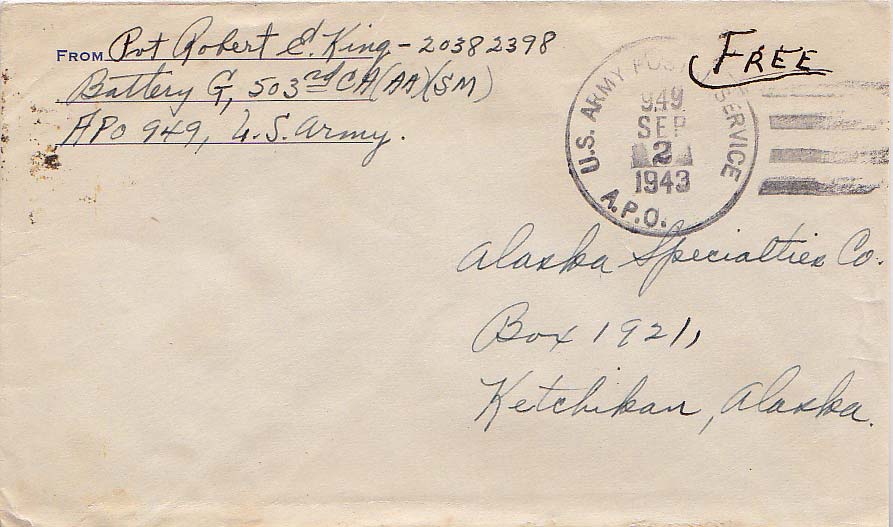 FROM Pvt Robert E. King - 20382398
Battery G, 503rd CA (AA)(SM)
APO 949, U.S. Army.
FREE
U.S. ARMY POSTAL SERVICE
949
SEP
2
1943
A.P.O.
Alaska Specialties Co.
Box 1921,
Ketchikan, Alaska.